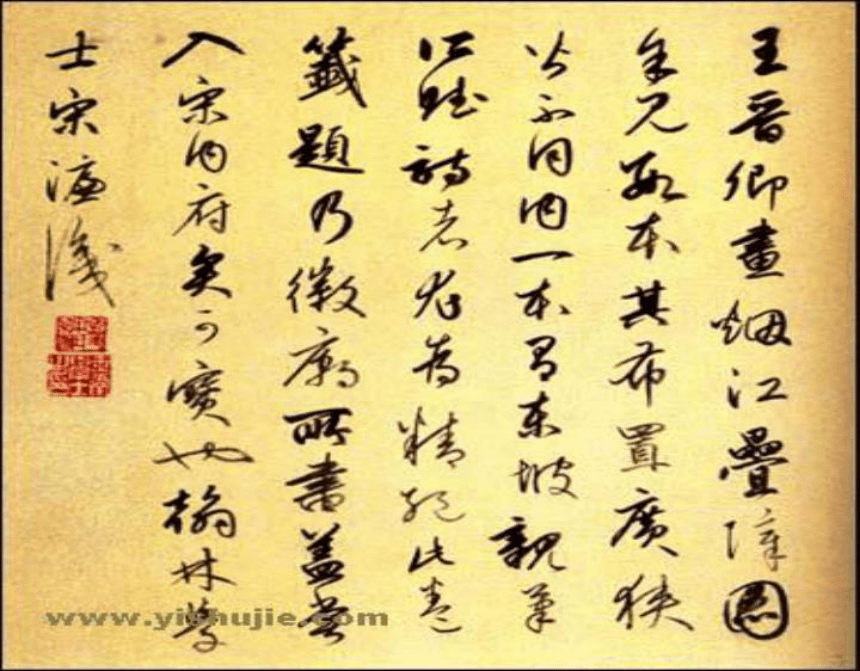 王晋卿畫烟江疊嶂圖
余見數本其布置廣狹
皆不同内一本有東坡親筆
所賦詩者尤為精絶此卷
籤題乃徽廟所書蓋嘗
入宋内府矣可寶也翰林學
士宋濂識
www.yishujie.com